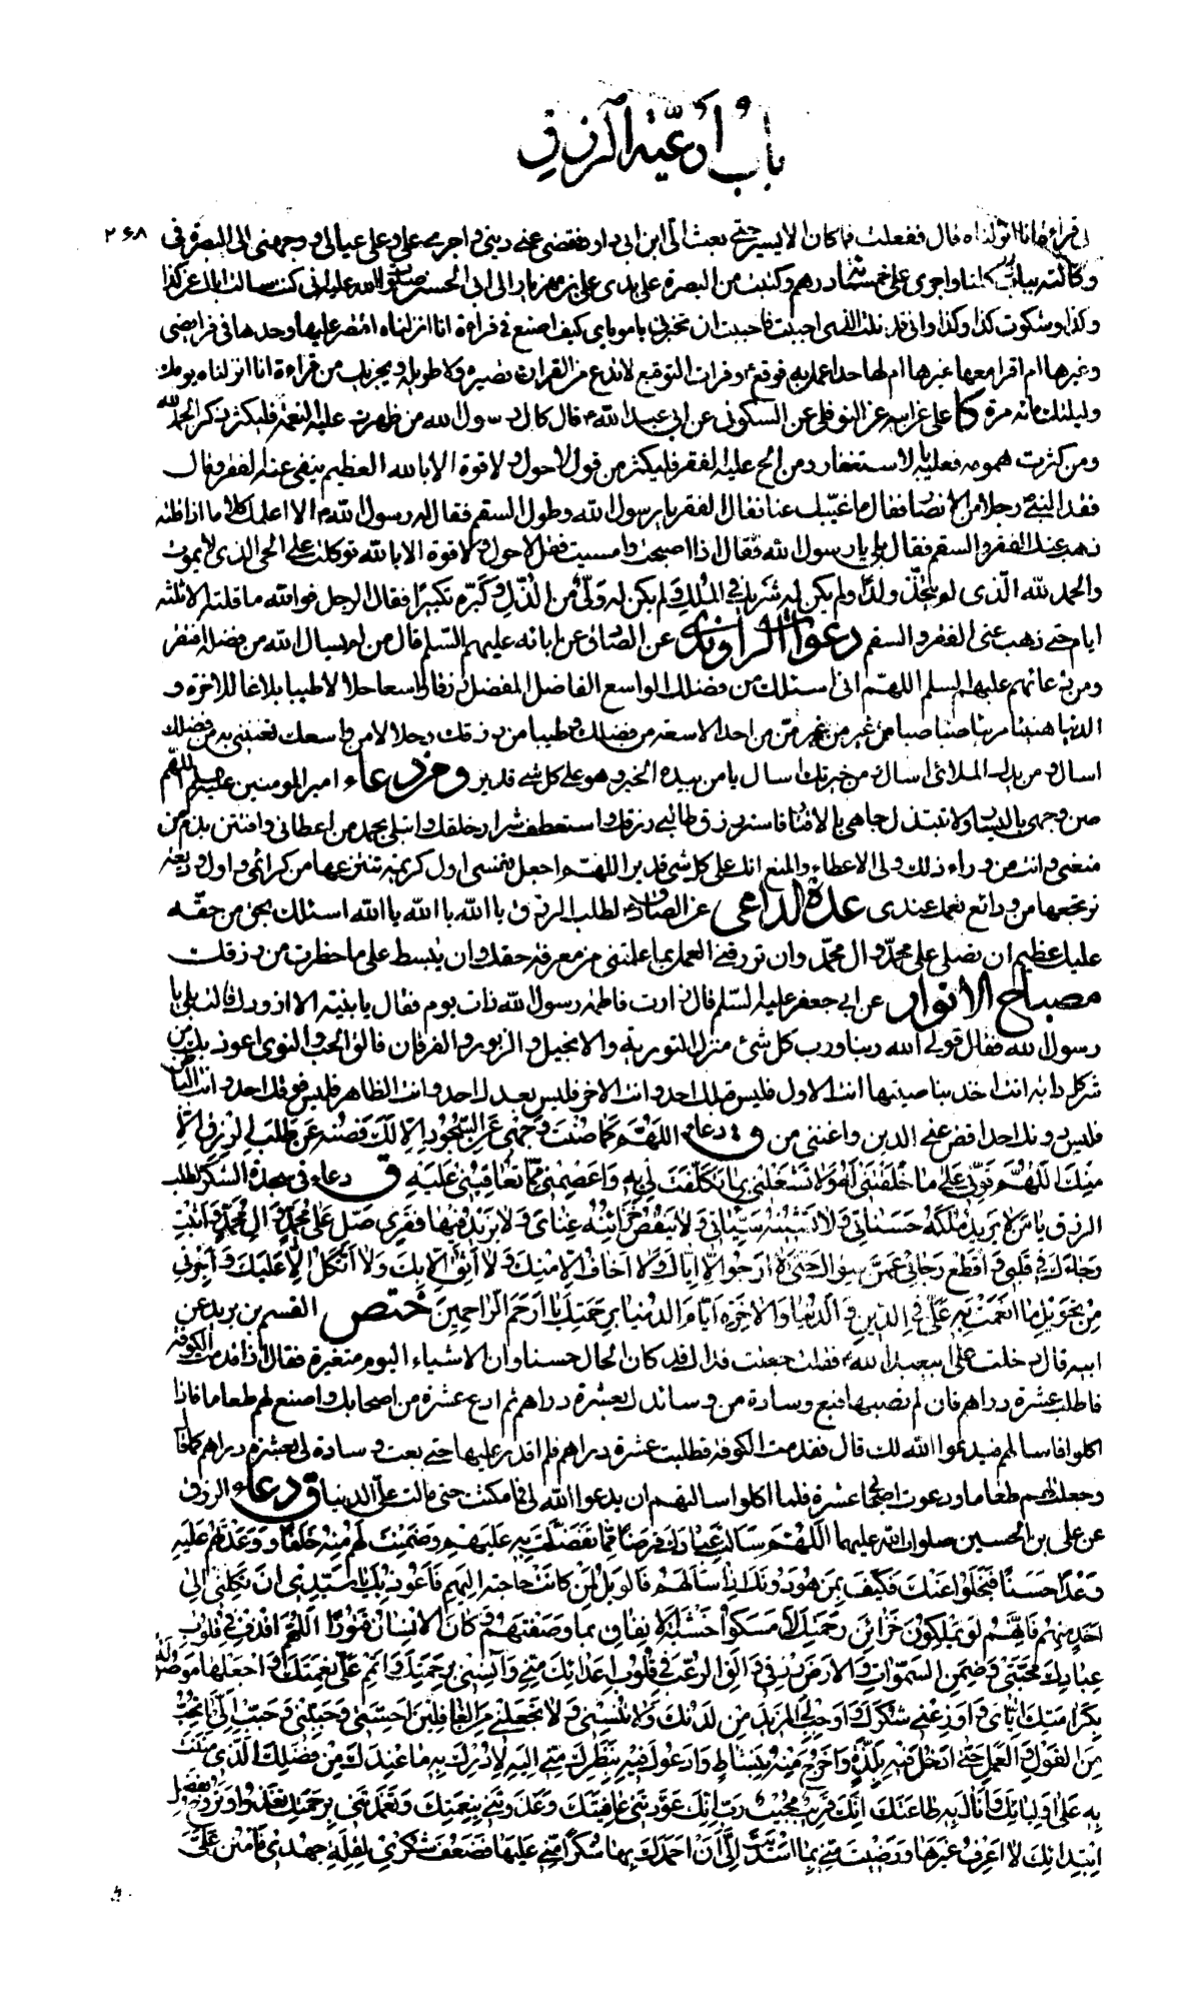 باب أدعية الرزق
٢٦٨
قراءة انا انزلناه قال ففعلت فما كان الا يسيرا حتى بعث الي ابن ابي دواد فقضى عني ديني واجرى علي وعلى عيالي ووجهني الى البصرة في
وكالته بباب كلتا واجرى علي خمسمائة درهم وكتبت من البصرة على يدي علي بن مهزيار الى ابي الحسن صلوات الله عليه اني كنت سالت اباك عن كذا
وكذا وشكوت كذا وكذا واني قد نلت الذي احببت فاحببت ان تخبرني يا مولاي كيف اصنع في قراءة انا انزلناه اقتصر عليها وحدها في فرايضي
وغيرها ام اقرا معها غيرها ام لها حد اعمل به فوقع ع وقرات التوقيع لا تدع من القران قصيره ولا طويله ويجزيك من قراءة انا انزلناه يومك
وليلتك مائة مرة كا علي عن ابيه عن النوفلي عن السكوني عن ابي عبد الله ع قال قال رسول الله من ظهرت عليه النعمة فليكثر ذكر الحمد لله
ومن كثرت همومه فعليه بالاستغفار ومن الح عليه الفقر فليكثر من قول لا حول ولا قوة الا بالله العظيم ينفى عنه الفقر وقال
فقد النبي ص رجلا من الانصار فقال ما غيبك عنا فقال الفقر يا رسول الله وطول السقم فقال له رسول الله ص الا اعلمك كلاما اذا قلته
ذهب عنك الفقر والسقم فقال بلى يا رسول الله فقال اذا اصبحت وامسيت فقل لا حول ولا قوة الا بالله توكلت على الحي الذي لا يموت
والحمد لله الّذى لم يتّخذ ولدًا ولم يكن له شريك في الملك ولم يكن له وليّ من الذّلّ وكبّره تكبيرًا فقال الرجل فوالله ما قلته الا ثلثة
ايام حتى ذهب عنى الفقر والسقم دعوات الراوندي عن الصادق عن ابائه عليهم السّلم قال من لم يسال الله من فضله افتقر
ومن دعائهم عليهم السلم اللهمّ انى اسئلك من فضلك الواسع الفاضل المفضل رزقا واسعا حلالا طيبا بلاغا للاخرة و
الدنيا هنيئا مريئا صبا صبا من غير من من احد الا سعة من فضلك وطيبا من رزقك وحلالا من واسعك تغنينى به من فضلك
اسال ومن يدك الملائ اسال ومن خيرتك اسال يا من بيده الخير وهو على كل شي قدير ومن دعاء امير المومنين عليه السلم اللّهم
صن وجهي باليسار ولا تبتذل جاهي بالاقتار فاسترزق طالبي رزقك واستعطف شرار خلقك وابتلى بحمد من اعطاني وافتتن بذم من
منعني وانت من وراء ذلك ولى الاعطاء والمنع انك على كل شي قدير اللهمّ اجعل نفسى اول كريمة تنتزعها من كرائمي واول وديعة
ترتجعها من ودائع نعمك عندى عدة الداعي عن الصادق ع لطلب الرزق يا الله يا الله يا الله اسئلك بحق من حقه
عليك عظيم ان تصلى على محمّد وال محمّد وان ترزقني العمل بما علمتني من معرفة حقك وان تبسط على ما حظرت من رزقك
مصباح الانوار عن ابي جعفر عليه السّلم قال زارت فاطمة رسول الله ذات يوم فقال يا بنية الا ازودك قالت بلى يا
رسول الله فقال قولى الله ربنا ورب كل شئ منزل التورية والانجيل والزبور والفرقان فالق الحب والنوى اعوذ بك من
شر كل دابة انت اخذ بناصيتها انت الاول فليس قبلك احد وانت الاخر فليس بعدك احد وانت الظاهر فليس فوقك احد وانت الباطن
فليس دونك احد اقض عني الدين واغنني من الفقر ق دعاء اللهمّ كما صنت وجهى عن السّجود الا لك فصنه عن طلب الرزق الا
منك اللهمّ قوّني على ما خلقتني له ولا تشغلني بما تكلّفت لي به واعصمني ممّا تعاقبني عليه ق دعاء في سجدة الشكر لطلب
الرزق يا من لا يزيد ملكه حسناتي ولا تشينه سيّئاتي ولا ينقص خزائنه غناى ولا يزيد فيها فقرى صلّ على محمّد وال محمّد واثبت
رجاءك في قلبي واقطع رجائي عمّن سواك حتى لا ارجو الا ايّاك ولا اخاف الا منك ولا اثق الا بك ولا اتّكل الا عليك واجرني
من تحويل ما انعمت به علىّ في الدين والدّنيا والاخره ايّام الدنيا برحمتك يا ارحم الرّاحمين ختص القسم بن بريد عن
ابيه قال دخلت على ابيعبد الله ع فقلت جعلت فداك قد كان الحال حسنا وان الاشياء اليوم متغيرة فقال اذا قدمت الكوفة
فاطلب عشرة دراهم فان لم تصبها فبع وسادة من وسائدك بعشرة دراهم ثم ادع عشرة من اصحابك واصنع لهم طعاما فاذا
اكلوا فاسالهم فيدعوا الله لك قال فقدمت الكوفة فطلبت عشرة دراهم فلم اقدر عليها حتى بعت وسادة لى بعشرة دراهم كما قال
وجعلت لهم طعاما ودعوت اصحابي عشرة فلما اكلوا سالتهم ان يدعوا الله لى فما مكثت حتى مالت علىّ الدنيا ق دعاء الرزق
عن على بن الحسين صلوات الله عليهما اللّهمّ سالت عبادك قرضا ممّا تفضّلت به عليهم وضمنت لهم منه خلفا ووعدتهم عليه
وعدًا حسنًا فبخلوا عنك فكيف بمن هو دونك اذا سالهم فالويل لمن كانت حاجته اليهم فاعوذ بك يا سيّدى ان تكلنى الى
احد منهم فانّهم لو يملكون خزائن رحمتك لامسكوا خشية الانفاق بما وصفتهم وكان الانسان قتورًا اللهمّ اقذف في قلوب
عبادك محبّتى وضمّن السموات والارض رزقي والق الرعب في قلوب اعدائك منّي وآنسني برحمتك واتمم علىّ نعمتك واجعلها موصولة
بكرامتك ايّاى واوزعني شكرك واوجب لي المزيد من لدنك ولا تنسني ولا تجعلني من الغافلين احبّني وحبّبني وحبّب الىّ ما تحبّ
من القول والعمل حتّى ادخل فيه بلذّة واخرج منه بنشاط وادعوك فيه بنظرك منّي اليه لادرك به ما عندك من فضلك الّذى مننت
به على اوليائك وانال به طاعتك انّك قريب مجيب ربّ انّك عوّدتني عافيتك وغذوتني بنعمتك وتغمّدتني برحمتك تغدو وتروح بفضل
ابتدائك لا اعرف غيرها ورضيت منّي بما اسديت الىّ ان احمدك بها شكرا منّي عليها فضعف شكري لقلّة جهدى فامنن علىّ